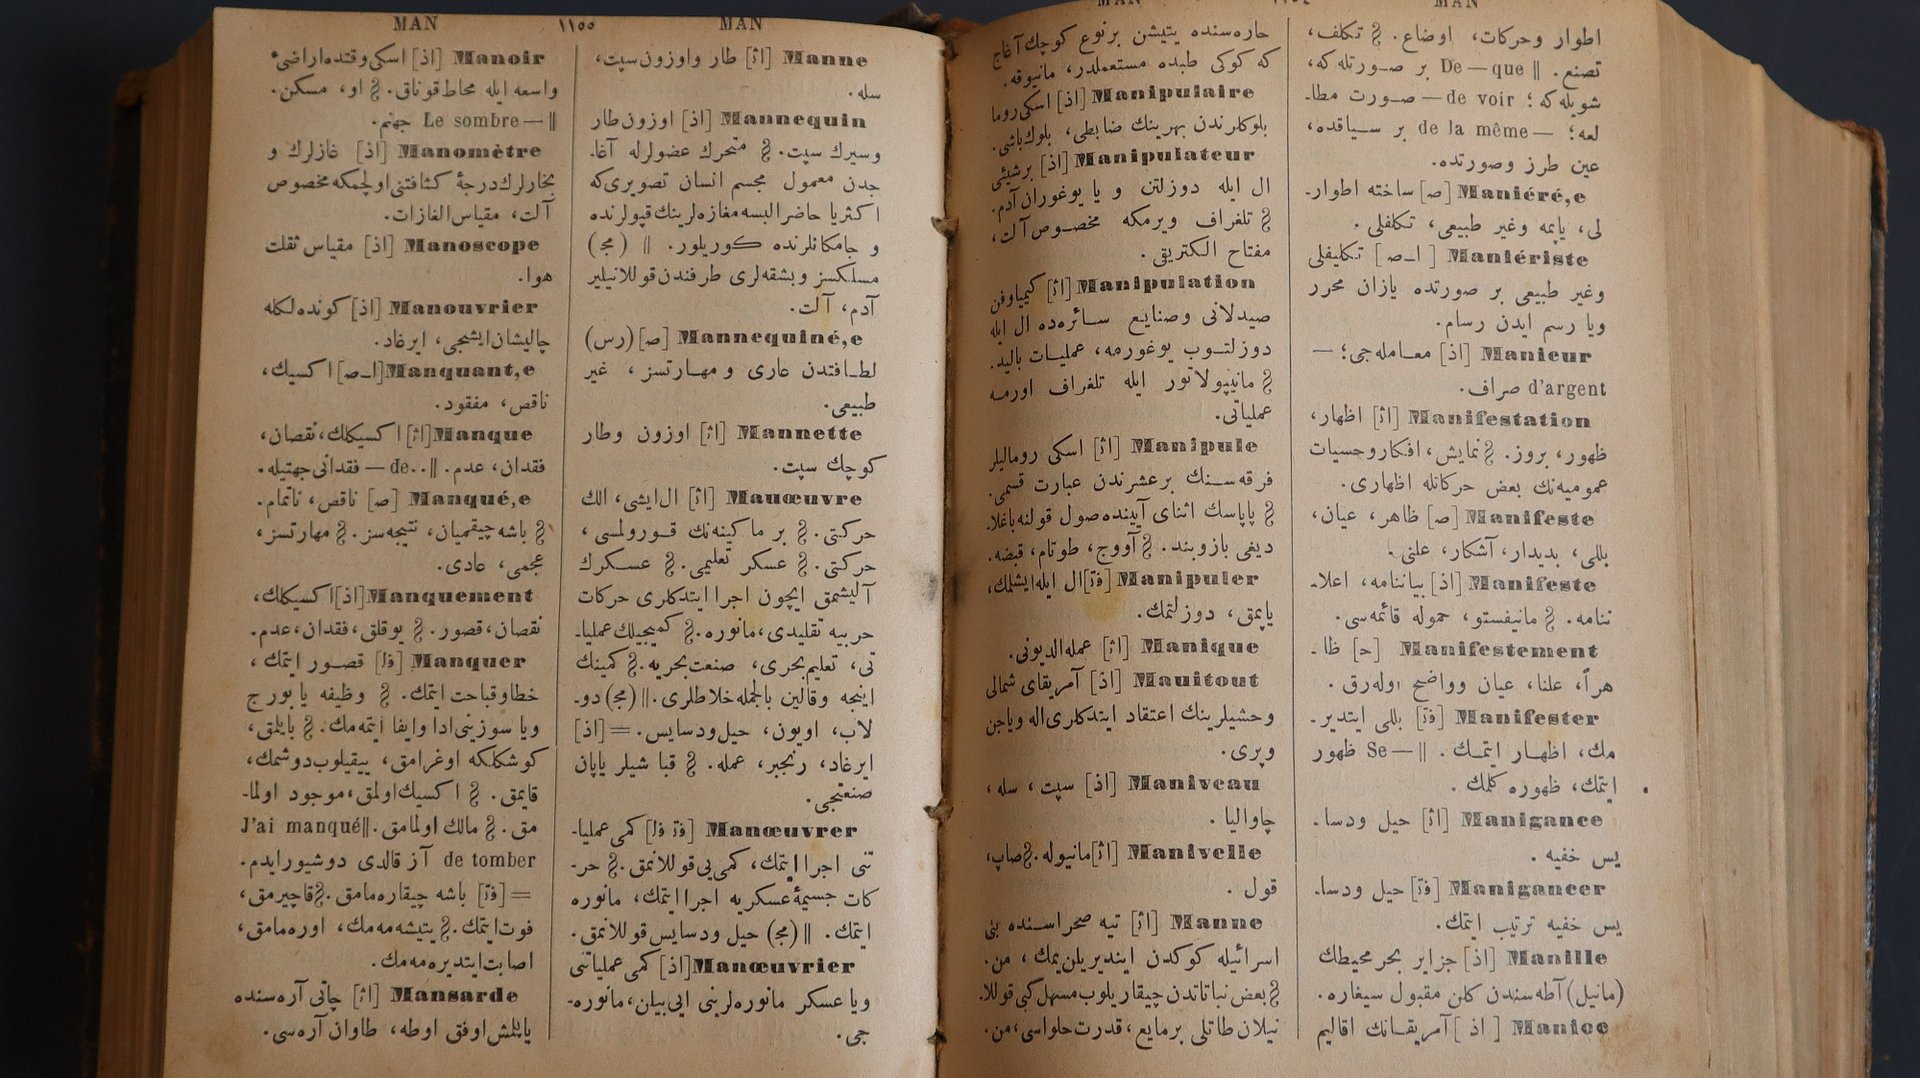 MAN ١١٥٤ MAN
اطوار وحركات، اوضاع. § تكلف،
تصنع. || De — que بر صورتله كه،
شويله كه؛ de voir — صورت مطا-
لعه؛ — de la même بر سياقده،
عين طرز وصورتده.
Maniéré,e [ص] ساخته اطوار-
لى، ياپمه وغير طبيعى، تكلفلى.
Maniériste [ا-ص] تكليفلى
وغير طبيعى بر صورتده يازان محرر
ويا رسم ايدن رسام.
Manieur [اذ] معامله جى؛ —
d'argent صراف.
Manifestation [اث] اظهار،
ظهور، بروز. § نمايش، افكار وحسيات
عموميه نك بعض حركاتله اظهارى.
Manifeste [ص] ظاهر، عيان،
بللى، بديدار، آشكار، علنى.
Manifeste [اذ] بياننامه، اعلا-
ننامه. § مانيفستو، حموله قائمه سى.
Manifestement [ح] ظا-
هراً، علنا، عيان وواضح اوله رق.
Manifester [فة] بللى ايتدير-
مك، اظهار ايتمك. || — Se ظهور
ايتمك، ظهوره كلمك.
Manigance [اث] حيل ودسا-
يس خفيه.
Manigancer [فة] حيل ودسا-
يس خفيه ترتيب ايتمك.
Manille [اذ] جزاير بحر محيطك
(مانيل) آطه سندن كلن مقبول سيغاره.
Manioc [اذ] آمريقانك اقاليم
حاره سنده يتيشن بر نوع كوچك آغاج
كه كوكى طبده مستعملدر، مانيوقه.
Manipulaire [اذ] اسكى روما
بلوكلرندن بهرينك ضابطى، بلوك باشى.
Manipulateur [اذ] بر شيئى
ال ايله دوزلتن و يا يوغوران آدم.
§ تلغراف ويرمكه مخصوص آلت،
مفتاح الكتريقى.
Manipulation [اث] كيمياوفن
صيدلانى وصنايع سائره ده ال ايله
دوزلتوب يوغورمه، عمليات باليد.
§ مانيپولاتور ايله تلغراف اورمه
عملياتى.
Manipule [اث] اسكى روماليلر
فرقه سنك بر عشرندن عبارت قسمى.
§ پاپاسك اثناى آيينده صول قولنه باغلا-
ديغى بازوبند. § آووج، طوتام، قبضه.
Manipuler [فة] ال ايله ايشلمك،
ياپمق، دوزلتمك.
Manique [اث] عمله الديونى.
Mauitout [اذ] آمريقاى شمالى
وحشيلرينك اعتقاد ايتدكلرى اله وياجن
وپرى.
Maniveau [اذ] سپت، سله،
چاواليا.
Manivelle [اث] مانيوله. § صاپ،
قول.
Manne [اث] تيه صحراسنده بنى
اسرائيله كوكدن اينديريلن يمك، من.
§ بعض نباتاتدن چيقاريلوب مسهل كبى قوللا-
نيلان طاتلى بر مايع، قدرت حلواسى، من.
MAN ١١٥٥ MAN
Manne [اث] طار واوزون سپت،
سله.
Mannequin [اذ] اوزون طار
وسيرك سپت. § متحرك عضولرله آغا-
جدن معمول مجسم انسان تصويرى كه
اكثريا حاضر البسه مغازه لرينك قپولرنده
و جامكانلرنده كوريلور. || (مج)
مسلكسز وبشقه لرى طرفندن قوللانيلير
آدم، آلت.
Mannequiné,e [ص] (رس)
لطافتدن عارى و مهارتسز، غير
طبيعى.
Mannette [اث] اوزون وطار
كوچك سپت.
Mauœuvre [اث] ال ايشى، الك
حركتى. § بر ماكينه نك قورولمسى،
حركتى. § عسكر تعليمى. § عسكرك
آليشمق ايچون اجرا ايتدكلرى حركات
حربيه تقليدى، مانوره. § كميجيلك عمليا-
تى، تعليم بحرى، صنعت بحريه. § كمينك
اينجه وقالين بالجمله خلاطلرى. || (مج) دو-
لاب، اويون، حيل ودسايس. = [اذ]
ايرغاد، رنجبر، عمله. § قبا شيلر ياپان
صنعتجى.
Manœuvrer [فة فل] كمى عمليا-
تنى اجرا ايتمك، كمى يى قوللانمق. § حر-
كات جسيمۀ عسكريه اجرا ايتمك، مانوره
ايتمك. || (مج) حيل ودسايس قوللانمق.
Manœuvrier [اذ] كمى عملياتنى
ويا عسكر مانوره لرينى ايى بيلن، مانوره-
جى.
Manoir [اذ] اسكى وقتده اراضئ
واسعه ايله محاط قوناق. § او، مسكن.
|| — Le sombre جهنم.
Manomètre [اذ] غازلرك و
بخارلرك درجۀ كثافتنى اولچمكه مخصوص
آلت، مقياس الغازات.
Manoscope [اذ] مقياس ثقلت
هوا.
Manouvrier [اذ] كونده لكله
چاليشان ايشجى، ايرغاد.
Manquant,e [ا-ص] اكسيك،
ناقص، مفقود.
Manque [اث] اكسيكلك، نقصان،
فقدان، عدم. || ..de — فقدانى جهتيله.
Manqué,e [ص] ناقص، ناتمام.
§ باشه چيقميان، نتيجه سز. § مهارتسز،
عجمى، عادى.
Manquement [اذ] اكسيكلك،
نقصان، قصور. § يوقلق، فقدان، عدم.
Manquer [فل] قصور ايتمك،
خطا وقباحت ايتمك. § وظيفه يا بورج
ويا سوزينى ادا وايفا ايتمه مك. § بايلمق،
كوشكلكه اوغرامق، ييقيلوب دوشمك،
قايمق. § اكسيك اولمق، موجود اولما-
مق. § مالك اولمامق. || J'ai manqué
de tomber آز قالدى دوشيورايدم.
= [فة] باشه چيقاره مامق. § قاچيرمق،
فوت ايتمك. § يتيشه مه مك، اوره مامق،
اصابت ايتديره مه مك.
Mansarde [اث] چاتى آره سنده
ياپلمش اوفق اوطه، طاوان آره سى.